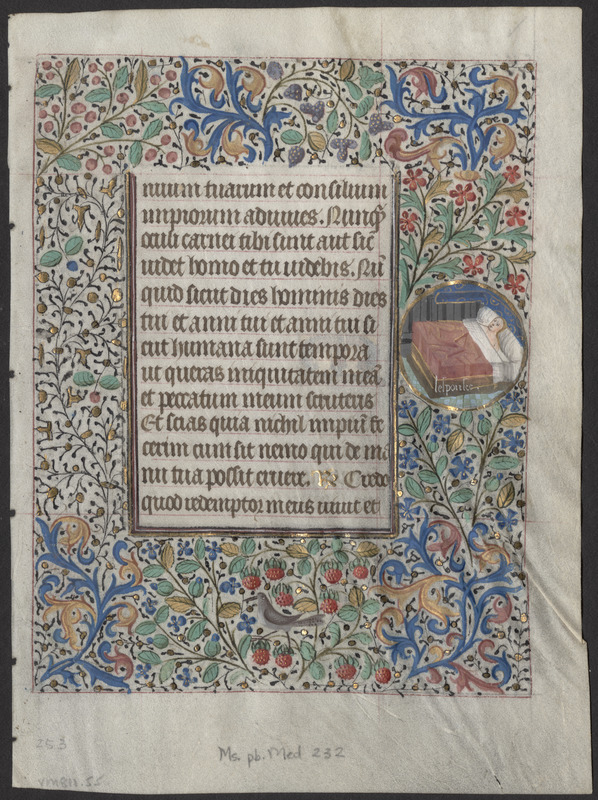 nuum tuarum et consilium
impiorum adiuues. Nunq̃
oculi carnei tibi sunt aut sic̄
uidet homo et tu uidebis. Nū
quid sicut dies hominis dies
tui et anni tui et anni tui si
cut humana sunt tempora
ut queras iniquitatem meā
et peccatum meum scruteris
Et scias quia nichil impiū fe
cerim cum sit nemo qui de ma
nu tua possit eruere. R Credo
quod redemptor meus uiuit et
lespousee
253
Ms. pb. Med 232